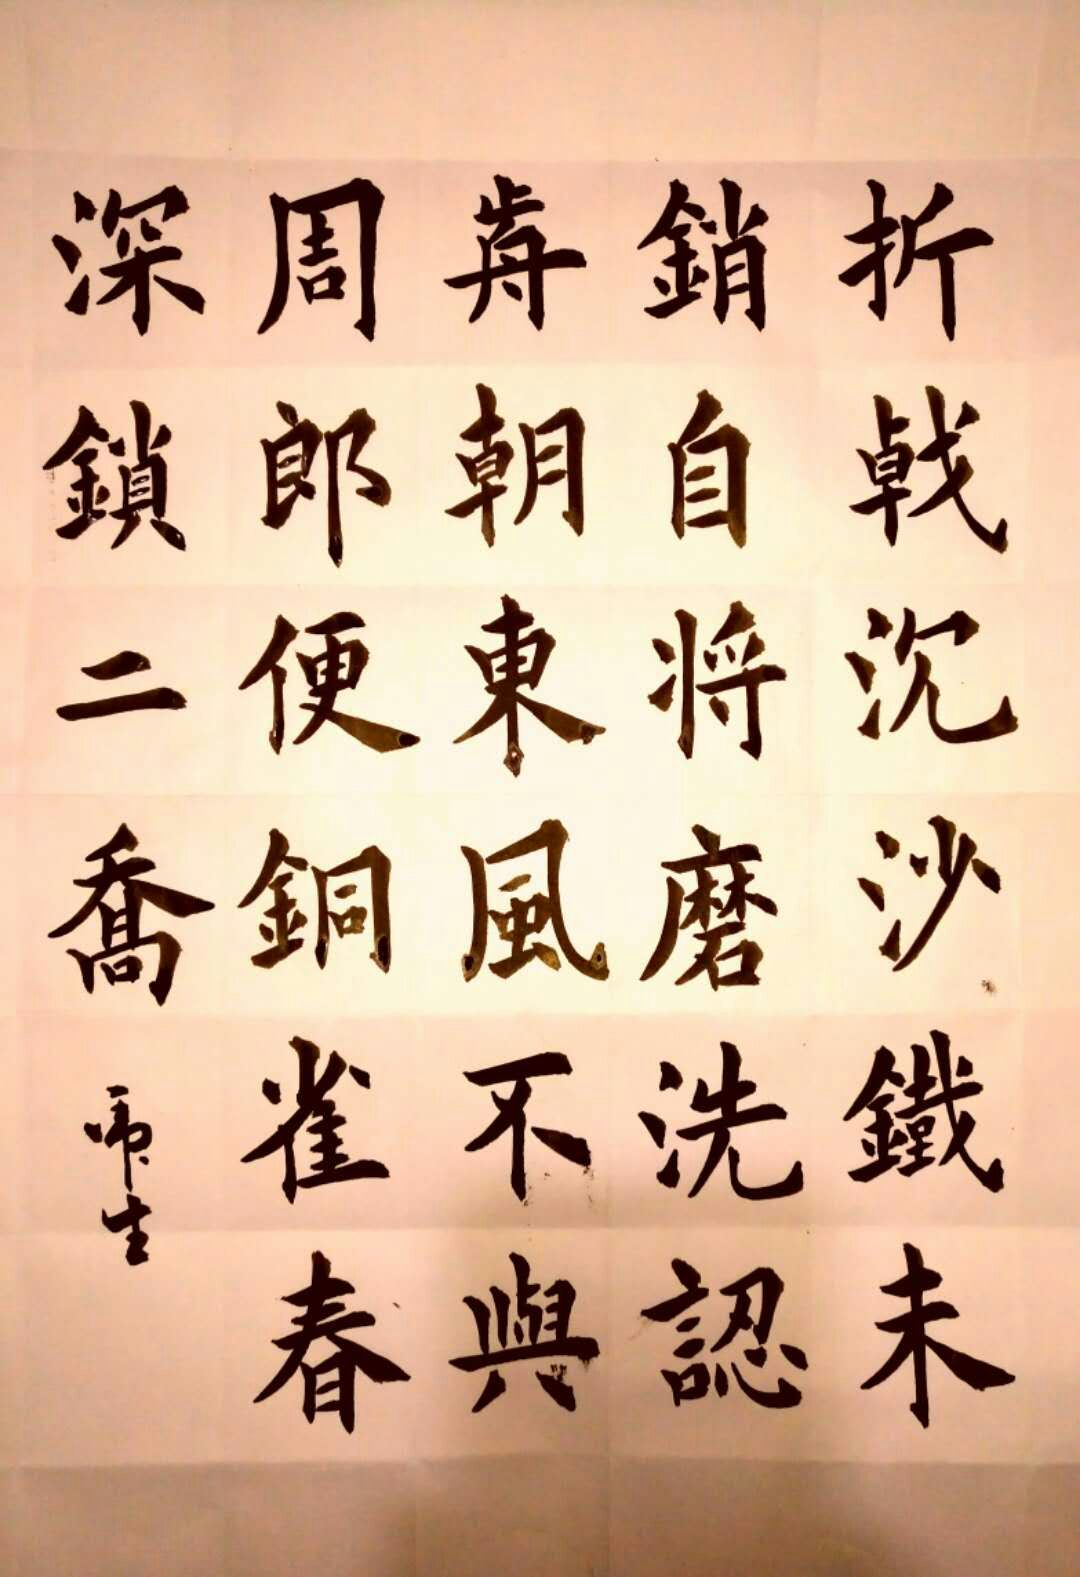 折戟沉沙鐵未
銷自將磨洗認
歬朝東風不與
周郎便銅雀春
深鎖二喬
生